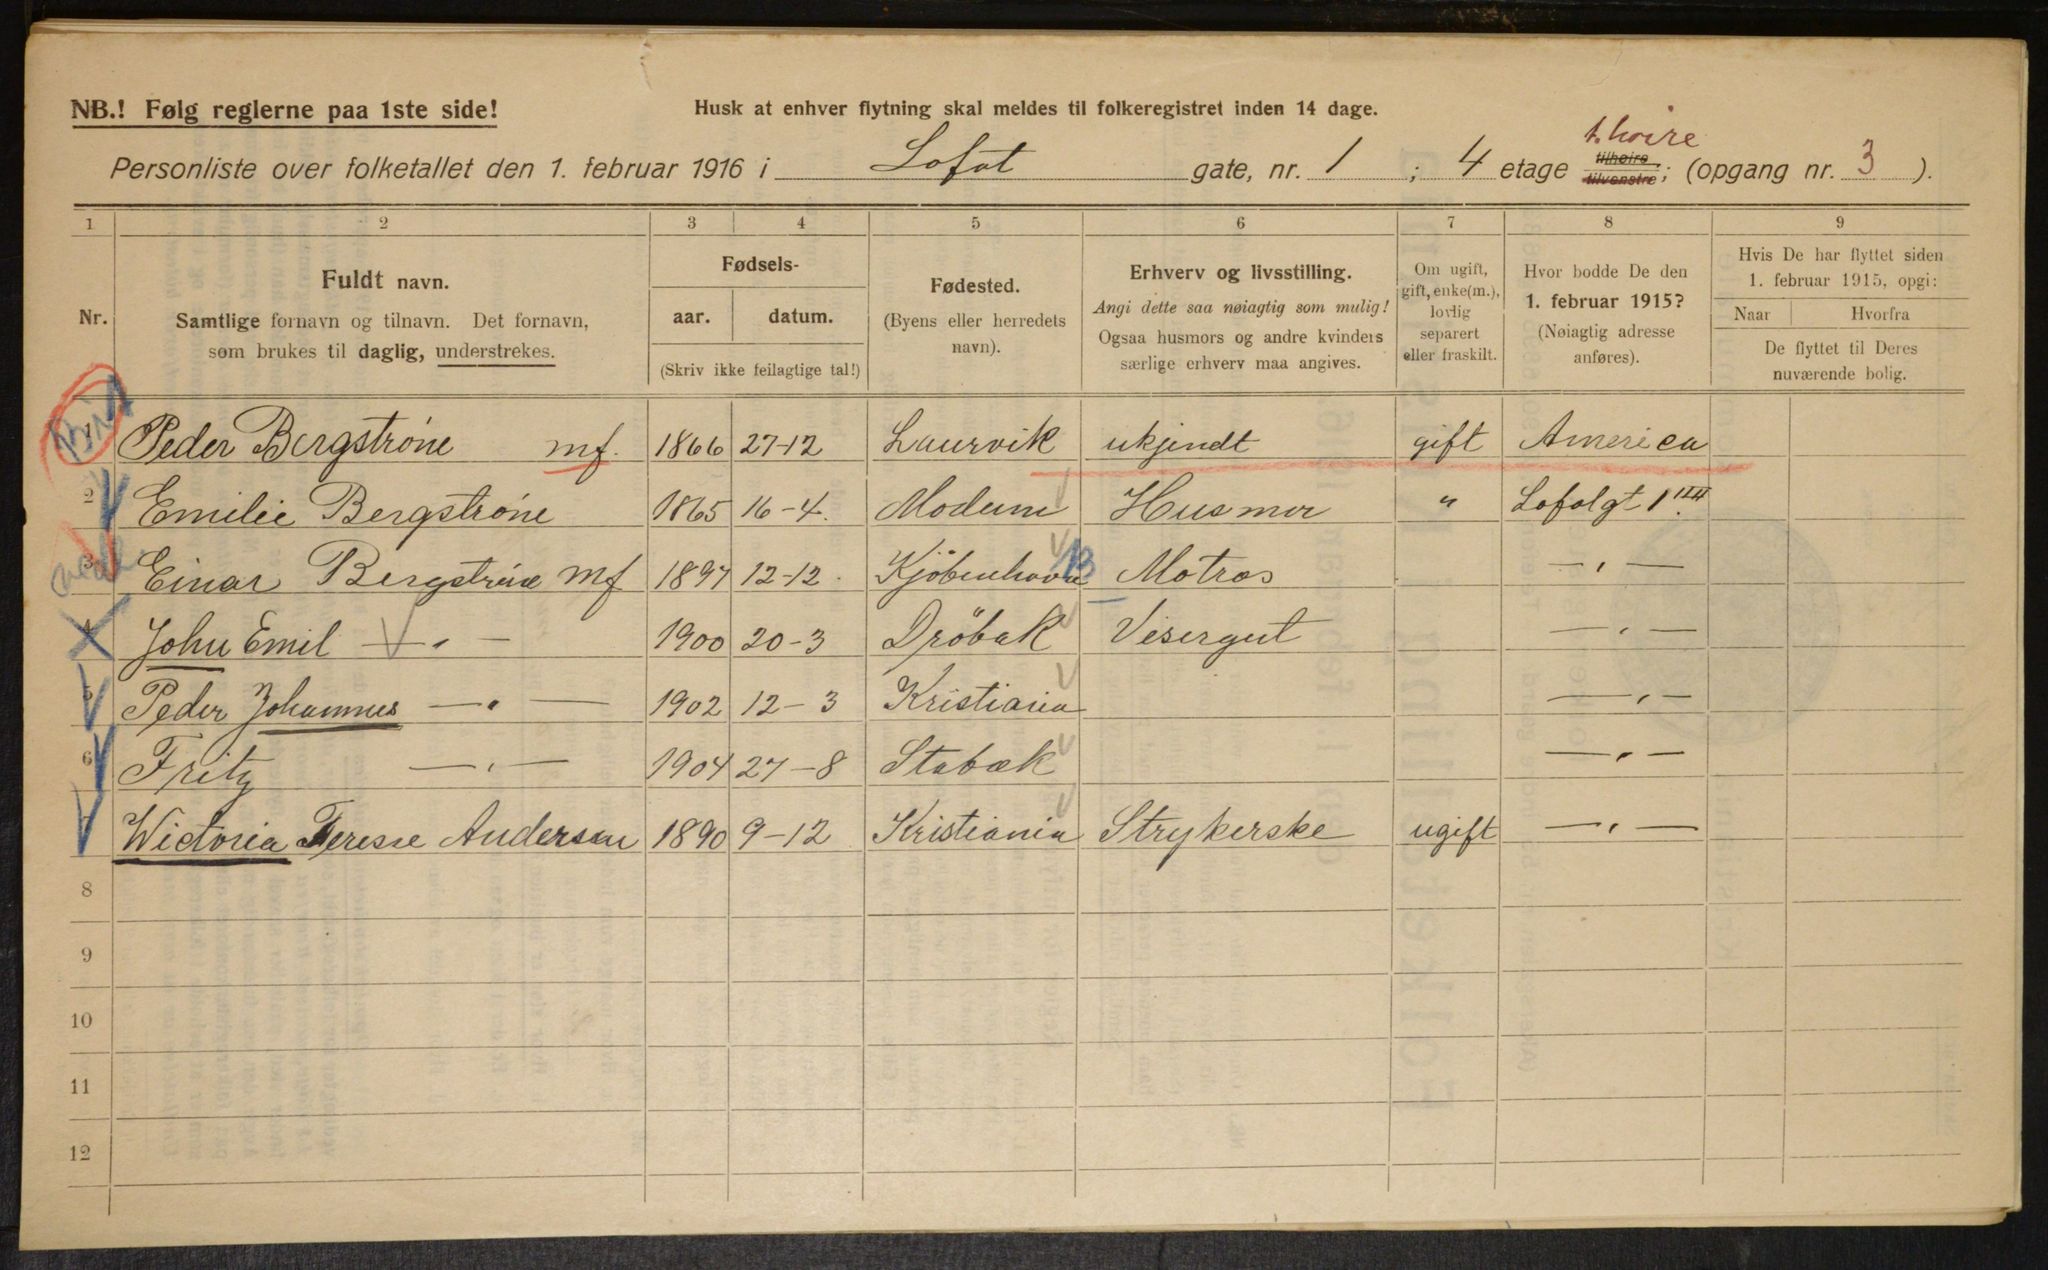 NB.! Følg reglerne paa 1ste side!
Husk at enhver flytning skal meldes til folkeregistret inden 14 dage.
t. hoire
Personliste over folketallet den 1. februar 1916 i Lofot gate, nr. 1 ; 4 etage tilhøire tilvenstre; (opgang nr. 3 ).
1 2 3 4 5 6 7 8 9
Nr.
Fuldt navn.
Samtlige fornavn og tilnavn. Det fornavn,
som brukes til daglig, understrekes.
Fødsels-
aar. datum.
(Skriv ikke feilagtige tal!)
Fødested.
(Byens eller herredets
navn).
Erhverv og livsstilling.
Angi dette saa nøiagtig som mulig!
Ogsaa husmors og andre kvinders
særlige erhverv maa angives.
Om ugift,
gift, enke(m.),
lovlig
separert
eller fraskilt.
Hvor bodde De den
1. februar 1915?
(Nøiagtig adresse
anføres).
Hvis De har flyttet siden
1. februar 1915, opgi:
Naar Hvorfra
De flyttet til Deres
nuværende bolig.
1 Peder Bergströne mf. 1866 27-12 Laurvik ukjendt gift America
2 Emilie Bergströne 1865 16-4. Modum Husmor " Lofotgt 1 III
3 Einar Bergströne mf 1897 12-12. Kjöbenhavn Matros —„—
4 John Emil —„— 1900 20-3 Dröbak Visergut —„—
5 Peder Johannes —„— 1902 12-3 Kristiania —„—
6 Fritz —„— 1904 27-8 Stabæk —„—
7 Wictoria Terese Andersen 1890 9-12 Kristiania Strykerske ugift —„—
8
9
10
11
12